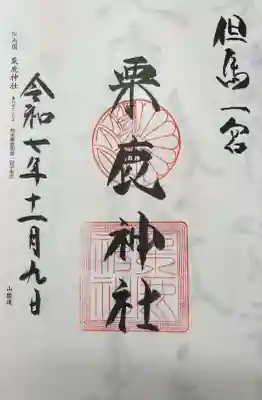 但馬一宮
粟鹿神社
令和七年十一月九日
粟鹿神社
山陰道